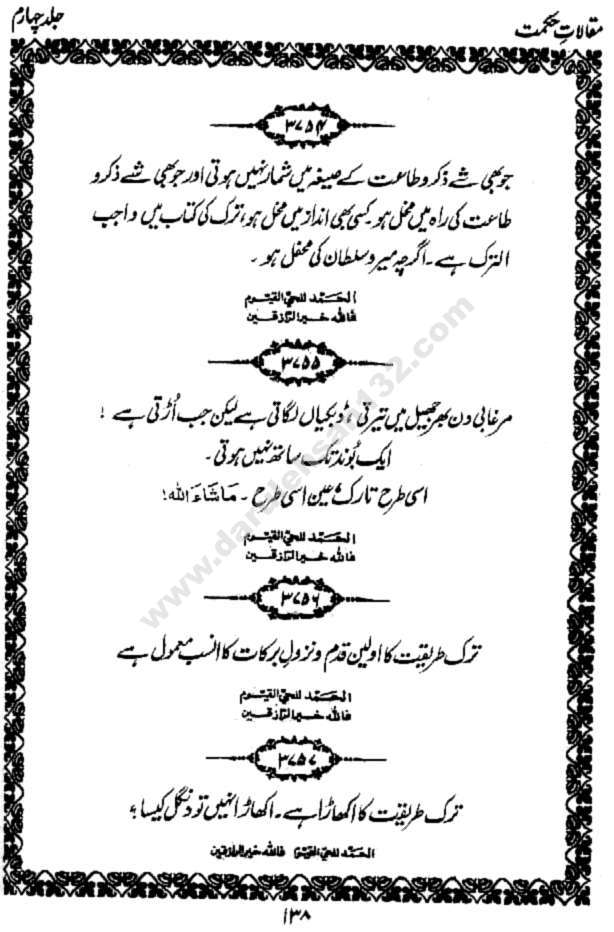 مقالاتِ حکمت
جلد چہارم
۳۷۵۴
جو بھی شے ذکر و طاعت کے صیغہ میں شمار نہیں ہوتی اور جو بھی شے ذکر و
طاعت کی راہ میں مخل ہو کسی بھی انداز میں مخل ہو، ترک کی کتاب میں واجب
الترک ہے۔ اگرچہ میر و سلطان کی محفل ہو۔
الحمد للحی القیوم
فاللہ خیر الرازقین
۳۷۵۵
مرغابی دن بھر جھیل میں تیرتی، ڈبکیاں لگاتی ہے لیکن جب اُڑتی ہے !
ایک بُوند تک ساتھ نہیں ہوتی۔
اسی طرح تارک، عین اسی طرح ۔ مَاشَاءَ اللہ!
الحمد للحی القیوم
فاللہ خیر الرازقین
۳۷۵۶
ترک طریقت کا اولین قدم و نزولِ برکات کا انسب معمول ہے
الحمد للحی القیوم
فاللہ خیر الرازقین
۳۷۵۷
ترک طریقت کا اکھاڑا ہے۔ اکھاڑا نہیں تو دنگل کیسا؟
الحمد للحی القیوم فاللہ خیر الرازقین
۱۳۸